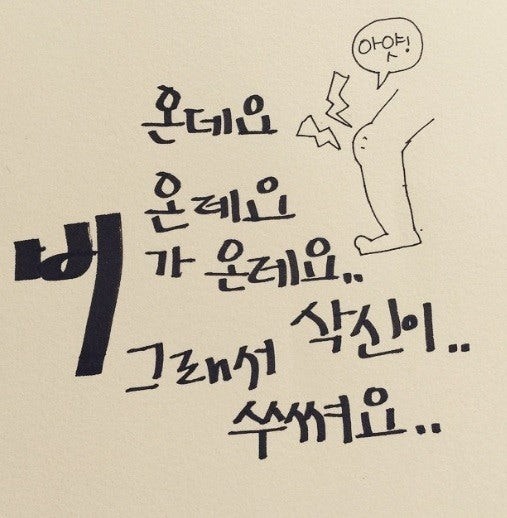 아얏!
온데요
온데요
비가 온데요..
그래서 삭신이..
쑤쎠요..